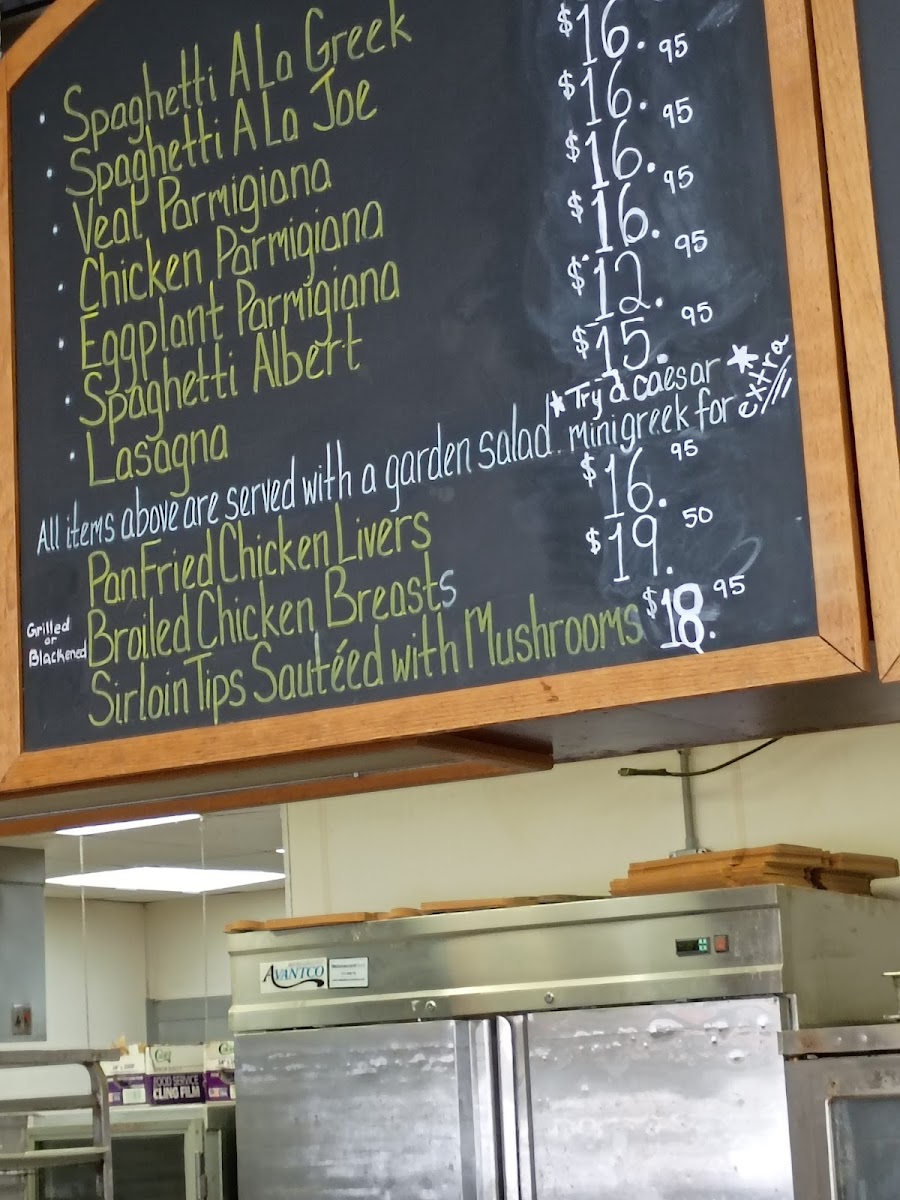 • Spaghetti A La Greek
• Spaghetti A La Joe $16.
• Veal Parmigiana $16.95
• Chicken Parmigiana $16.95
• Eggplant Parmigiana $16.95
• Spaghetti Albert $12.95
• Lasagna $15.95
All items above are served with a garden salad. *Try a caesar * minigreek for extra
Pan Fried Chicken Livers $16.95
Grilled or Blackened
Broiled Chicken Breasts $19.50
Sirloin Tips Sautéed with Mushrooms $18.95
AVANTCO
FOOD SERVICE
CLING FILM